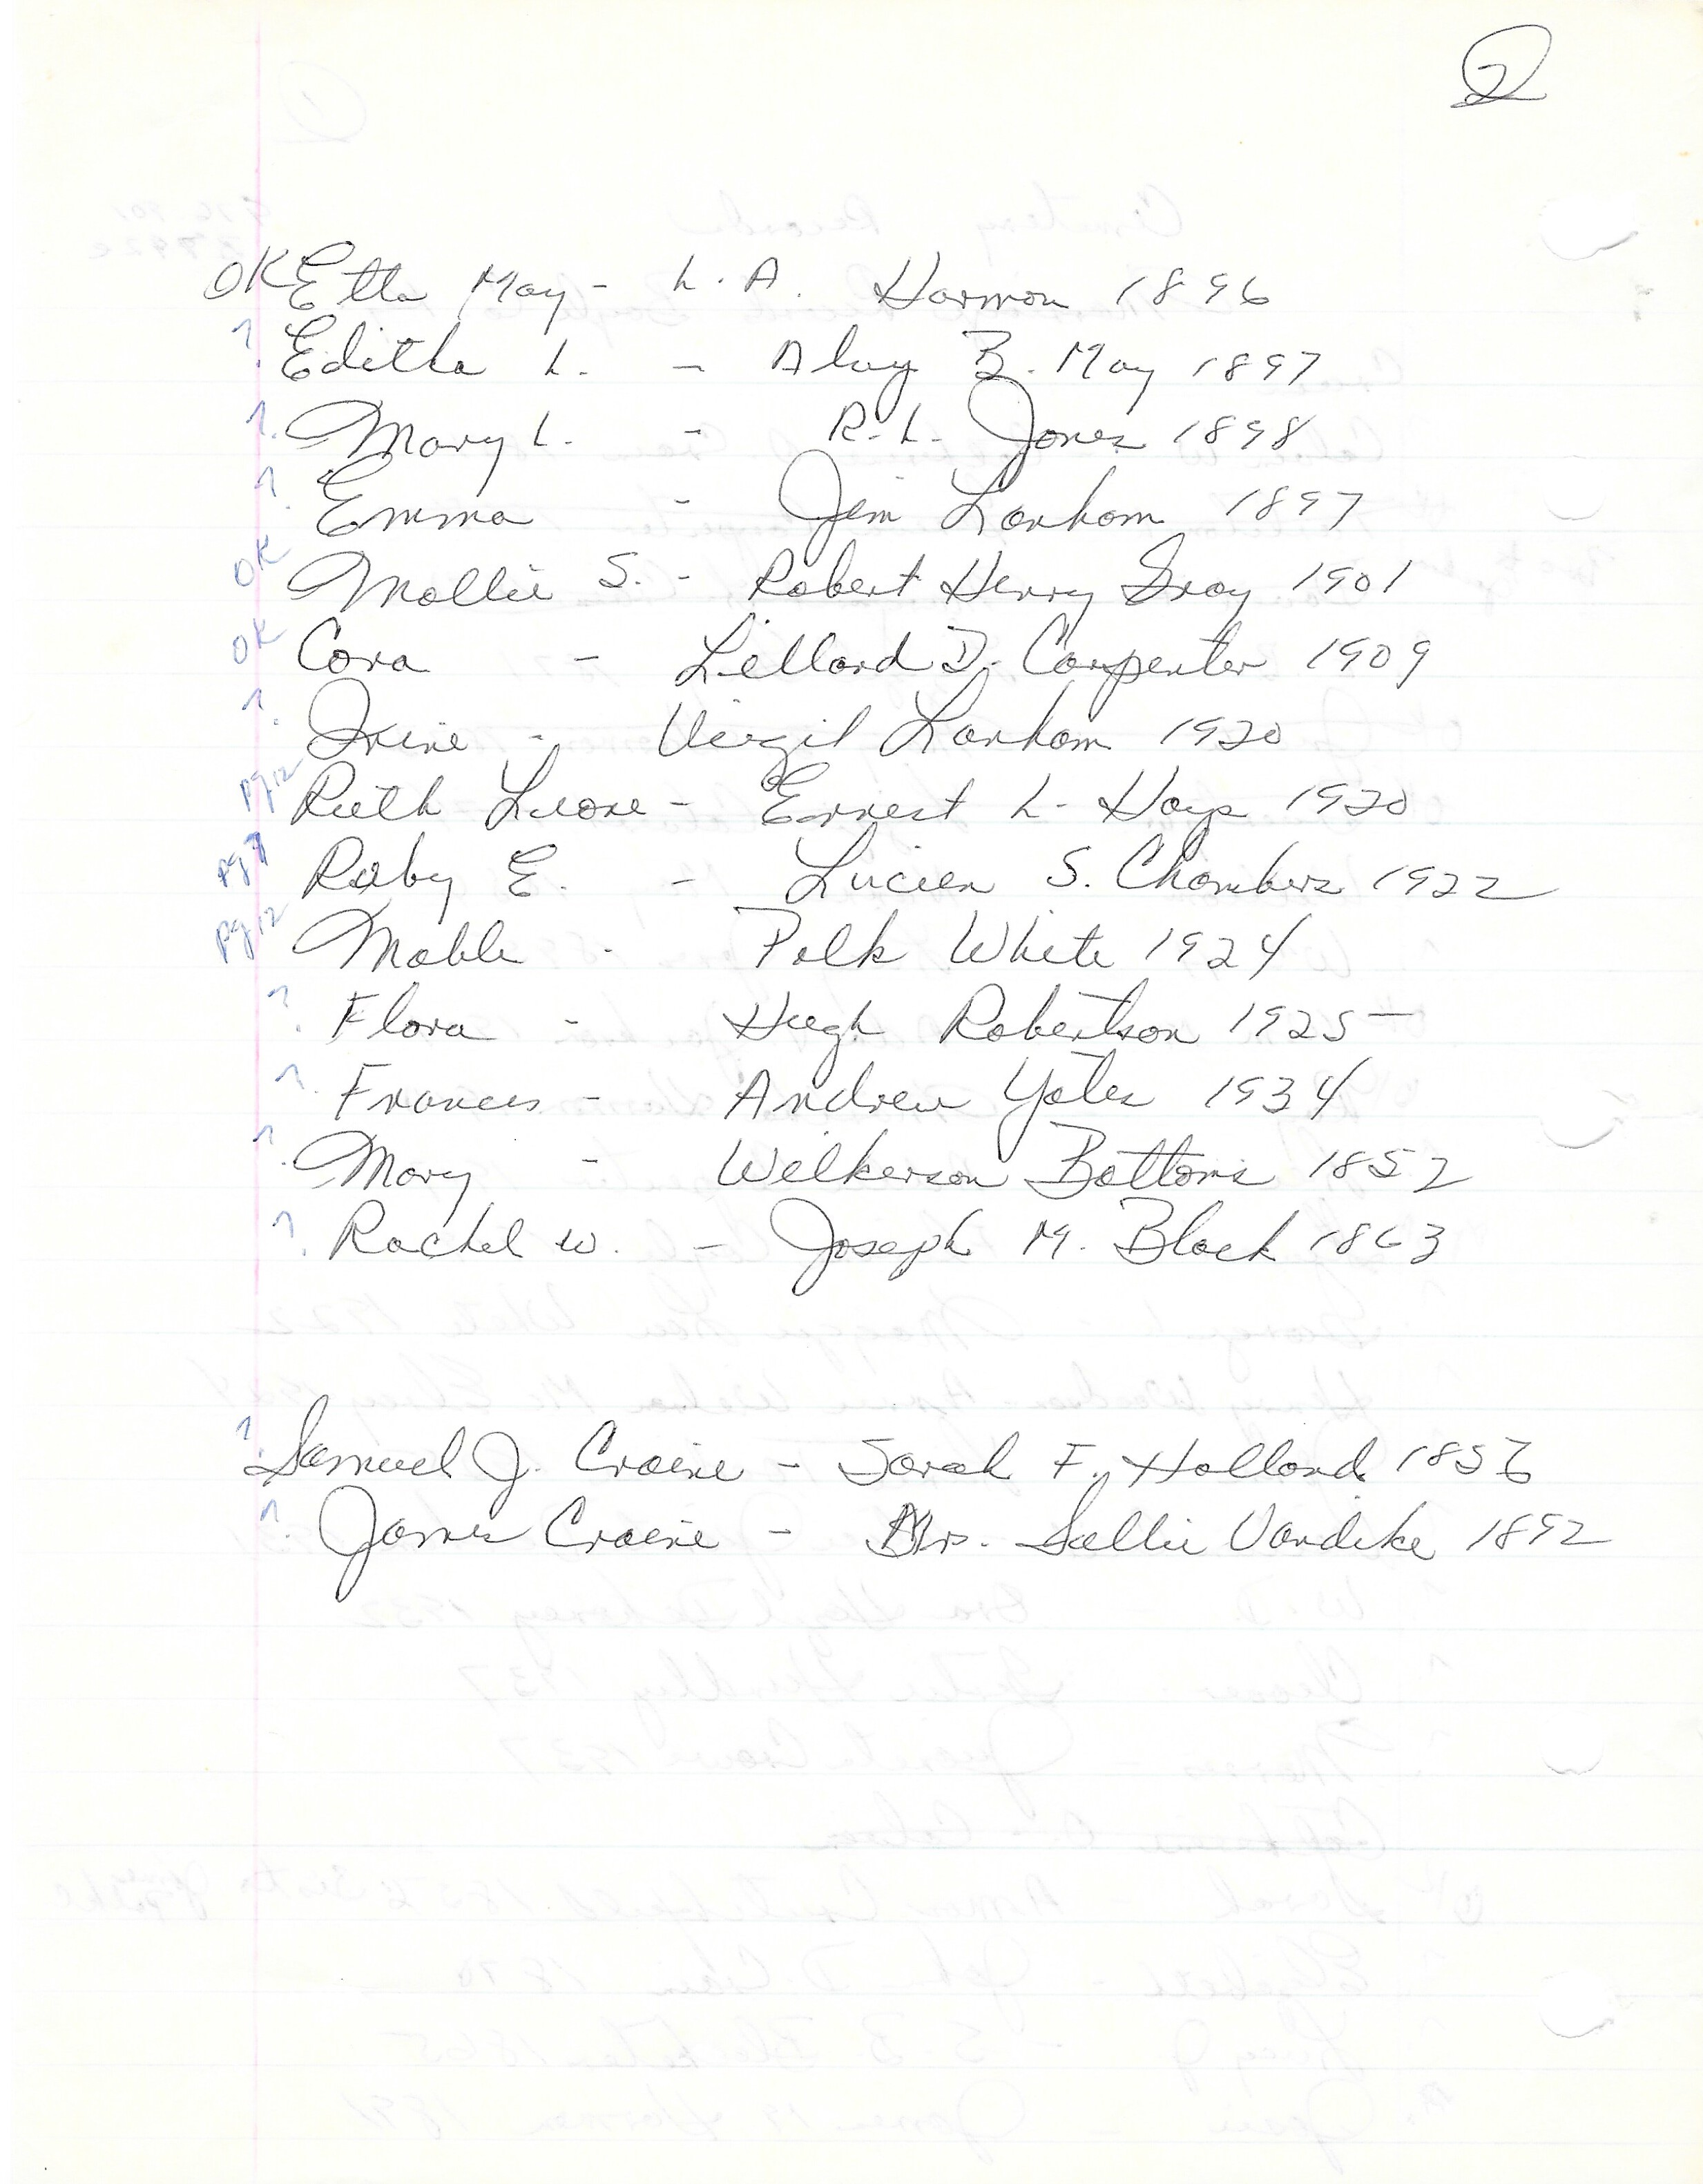 2
OK Etta May - L. A. Harmon 1896
? Editha L. - Alvy B. May 1897
? Mary L. - R. L. Jones 1898
? Emma - Jim Lanham 1897
OK Mollie S. - Robert Henry Gray 1901
OK Cora - Lillard D. Carpenter 1909
? Irine - Virgil Lanham 1920
pg 12 Ruth Leone - Ernest L. Hays 1920
pg Ruby E. - Lucien S. Chambers 1922
pg 12 Mable - Polk White 1924
? Flora - Hugh Robertson 1925
? Frances - Andrew Yates 1934
? Mary - Wilkerson Bottoms 1852
? Rachel W. - Joseph M. Black 1863
? Samuel J. Craine - Sarah F. Holland 1856
? James Craine - Mrs. Sallie Vandike 1892